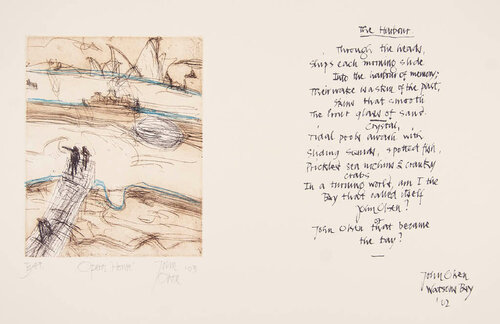 The Harbour
Through the heads,
Ships each morning slide
Into the harbour of memory;
Their wake a skein of the past,
that smooth
The front glass of sand.
Crystal,
Tidal pools awash with
Sliding squids, spotted fish,
Prickled sea urchins & cranky
crabs
In a turning world, am I the
Bay that called itself
John Olsen?
or
John Olsen that became
the bay?
John Olsen
Watsons Bay
'02
Opera House
John
Olsen
'03